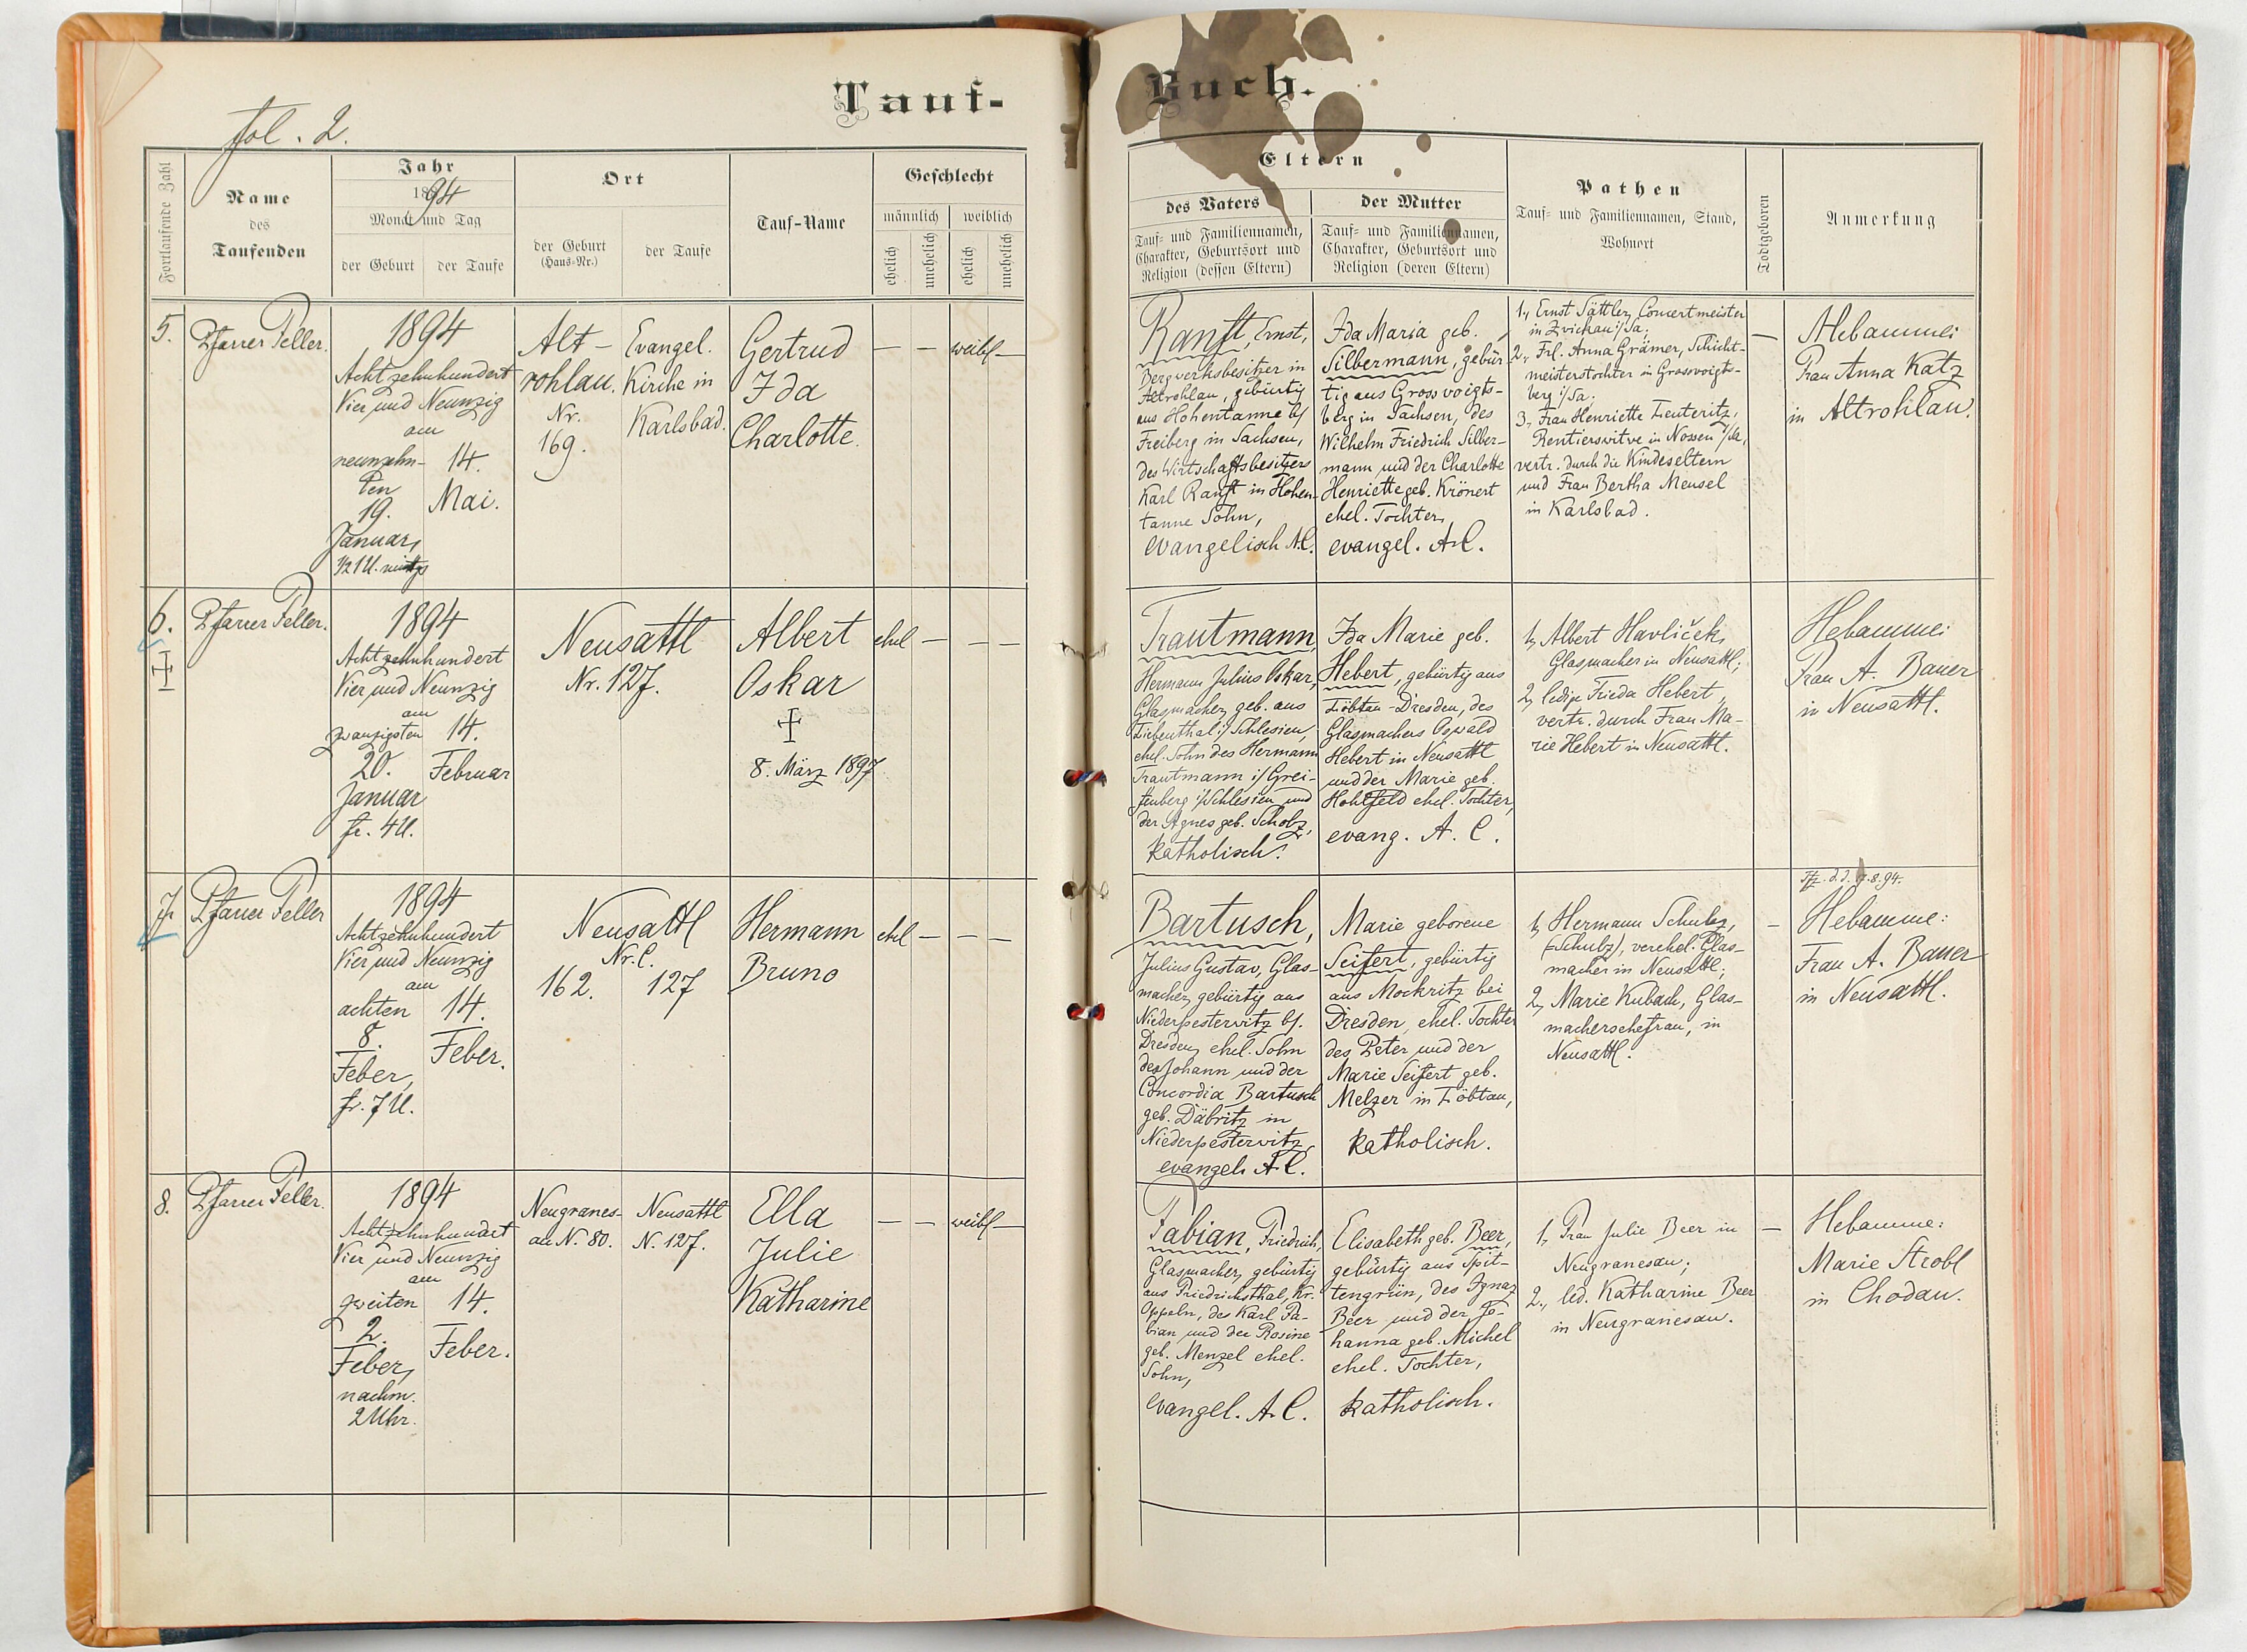 Tauf-
Buch.
fol. 2.
Fortlaufende Zahl
Name
des
Taufenden
Jahr
1894
Monat und Tag
der Geburt
der Taufe
Ort
der Geburt
(Haus-Nr.)
der Taufe
Tauf-Name
Geschlecht
männlich
weiblich
ehelich
unehelich
ehelich
unehelich
Eltern
des Vaters
Tauf- und Familiennamen,
Charakter, Geburtsort und
Religion (dessen Eltern)
der Mutter
Tauf- und Familiennamen,
Charakter, Geburtsort und
Religion (deren Eltern)
Pathen
Tauf- und Familiennamen, Stand,
Wohnort
Todtgeboren
Anmerkung
5.
Pfarrer Feller.
1894
Achtzehnhundert
Vier und Neunzig
am
neunzehn-
ten
19.
Januar,
½1 U. mittgs
14.
Mai.
Alt-
rohlau.
Nr.
169.
Evangel.
Kirche in
Karlsbad.
Gertrud
Ida
Charlotte.
— — weibl —
Ranft, Ernst,
Bergwerksbesitzer in
Altrohlau, gebürtig
aus Hohentanne b/
Freiberg in Sachsen,
des Wirtschaftsbesitzers
Karl Ranft in Hohen-
tanne Sohn,
evangelisch A.C.
Ida Maria geb.
Silbermann, gebür-
tig aus Grossvoigts-
berg in Sachsen, des
Wilhelm Friedrich Silber-
mann und der Charlotte
Henriette geb. Krönert
ehel. Tochter,
evangel. A.C.
1., Ernst Sättler, Concertmeister
in Zwickau i/Sa;
2., Frl. Anna Grämer, Schicht-
meisterstochter in Grossvoigts-
berg i/Sa;
3., Frau Henriette Leuteritz,
Rentierswitwe in Nossen i/Sa,
vertr. durch die Kindeseltern
und Frau Bertha Meusel
in Karlsbad.
—
Hebamme:
Frau Anna Katz
in Altrohlau.
6.
Pfarrer Feller.
1894
Achtzehnhundert
Vier und Neunzig
am
zwanzigsten
20.
Januar
fr. 4 U.
14.
Februar
Neusattl
Nr. 127.
Albert
Oskar
8. März 1897
ehel — — —
Trautmann,
Hermann Julius Oskar,
Glasmacher, geb. aus
Liebenthal i/ Schlesien,
ehel. Sohn des Hermann
Trautmann i/ Grei-
fenberg i/Schlesien und
der Agnes geb. Scholz,
katholisch.
Ida Marie geb.
Hebert, gebürtig aus
Löbtau-Dresden, des
Glasmachers Oswald
Hebert in Neusattl
und der Marie geb.
Hohlfeld ehel. Tochter,
evang. A. C.
1, Albert Havlíček,
Glasmacher in Neusattl;
2, ledige Frieda Hebert,
vertr. durch Frau Ma-
rie Hebert in Neusattl.
Hebamme:
Frau A. Bauer
in Neusattl.
7.
Pfarrer Feller
1894
Achtzehnhundert
Vier und Neunzig
am
achten
8.
Feber,
fr. 7 U.
14.
Feber.
Neusattl
Nr. C.
162.
127
Hermann
Bruno
ehel — — —
Bartusch,
Julius Gustav, Glas-
macher, gebürtig aus
Niederpesterwitz b/.
Dresden, ehel. Sohn
des Johann und der
Concordia Bartusch
geb. Däbritz in
Niederpesterwitz,
evangel. A.C.
Marie geborene
Seifert, gebürtig
aus Mockritz bei
Dresden, ehel. Tochter
des Peter und der
Marie Seifert geb.
Melzer in Löbtau,
katholisch.
1, Hermann Schulz,
(Schulz), verehel. Glas-
macher in Neusattl;
2, Marie Kubach, Glas-
machersehefrau, in
Neusattl.
—
8.94.
Hebamme:
Frau A. Bauer
in Neusattl.
8.
Pfarrer Feller.
1894
Achtzehnhundert
Vier und Neunzig
am
zweiten
2.
Feber,
nachm.
2 Uhr.
14.
Feber.
Neugranes-
au N. 80.
Neusattl
N. 127.
Ella
Julie
Katharine
— — weibl —
Fabian, Friedrich,
Glasmacher, gebürtig
aus Friedrichsthal, Kr.
Oppeln, des Karl Fa-
bian und der Rosine
geb. Menzel ehel.
Sohn,
evangel. A.C.
Elisabeth geb. Beer,
gebürtig aus Spit-
tengrün, des Ignaz
Beer und der Jo-
hanna geb. Michel
ehel. Tochter,
katholisch.
1, Frau Julie Beer in
Neugranesau;
2., led. Katharine Beer
in Neugranesau.
—
Hebamme:
Marie Strobl
in Chodau.